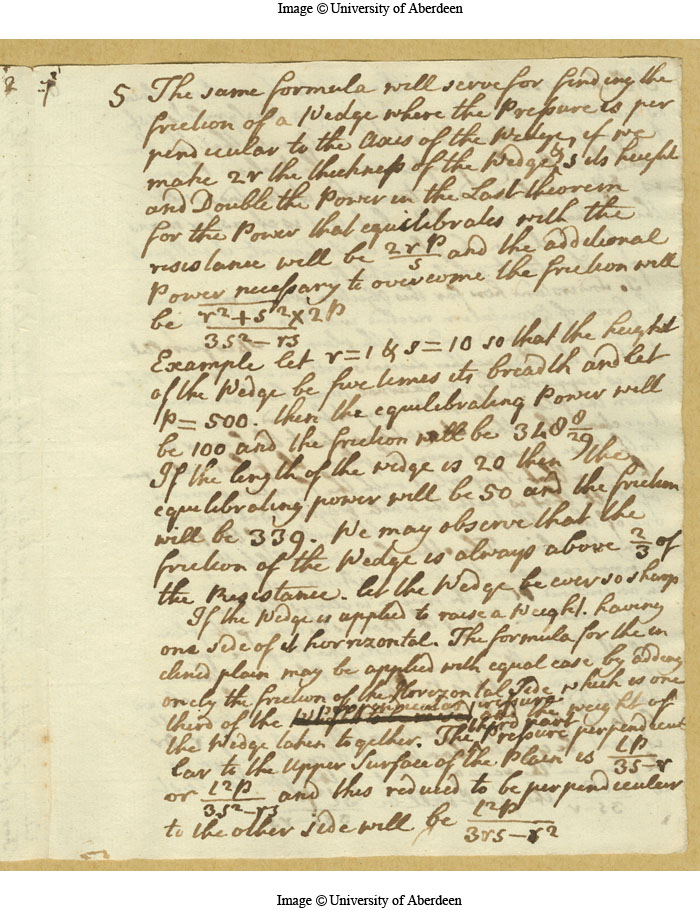 Image © University of Aberdeen
5 The same formula will serve for finding the
friction of a Wedge where the Pressure is per
pendicular to the Axis of the Wedge, if we
make 2r the thickness of the Wedge & s its height
and Double the Power in the Last theorem
for the Power that equilibrates with the
resistance will be 2rP/s and the additional
Power necessary to overcome the friction will
be r²+s²×2P/3s²-rs
Example let r=1 & s=10 so that the height
of the Wedge be five times its breadth and let
P=500. then the equilibrating Power will
be 100 and the friction will be 348 8/29
If the length of the wedge is 20 then the
equilibrating power will be 50 and the friction
will be 339. We may observe that the
friction of the Wedge is always above 2/3 of
the Resistance. let the Wedge be ever so sharp
If the Wedge is applied to raise a Weight. having
one side of it horrizontal. The formula for the in
clined plain may be applied with equal ease by adding
onely the friction of the Horizontal Side which is one
third of the perpendicular pressure weight of
third part
the Wedge taken together. The Pressure perpendicu
lar to the Upper Surface of the Plain is LP/3s-r
or L²P/3s²-rs and this reduced to be perpendicular
to the other side will be L²P/3rs-r²
Image © University of Aberdeen